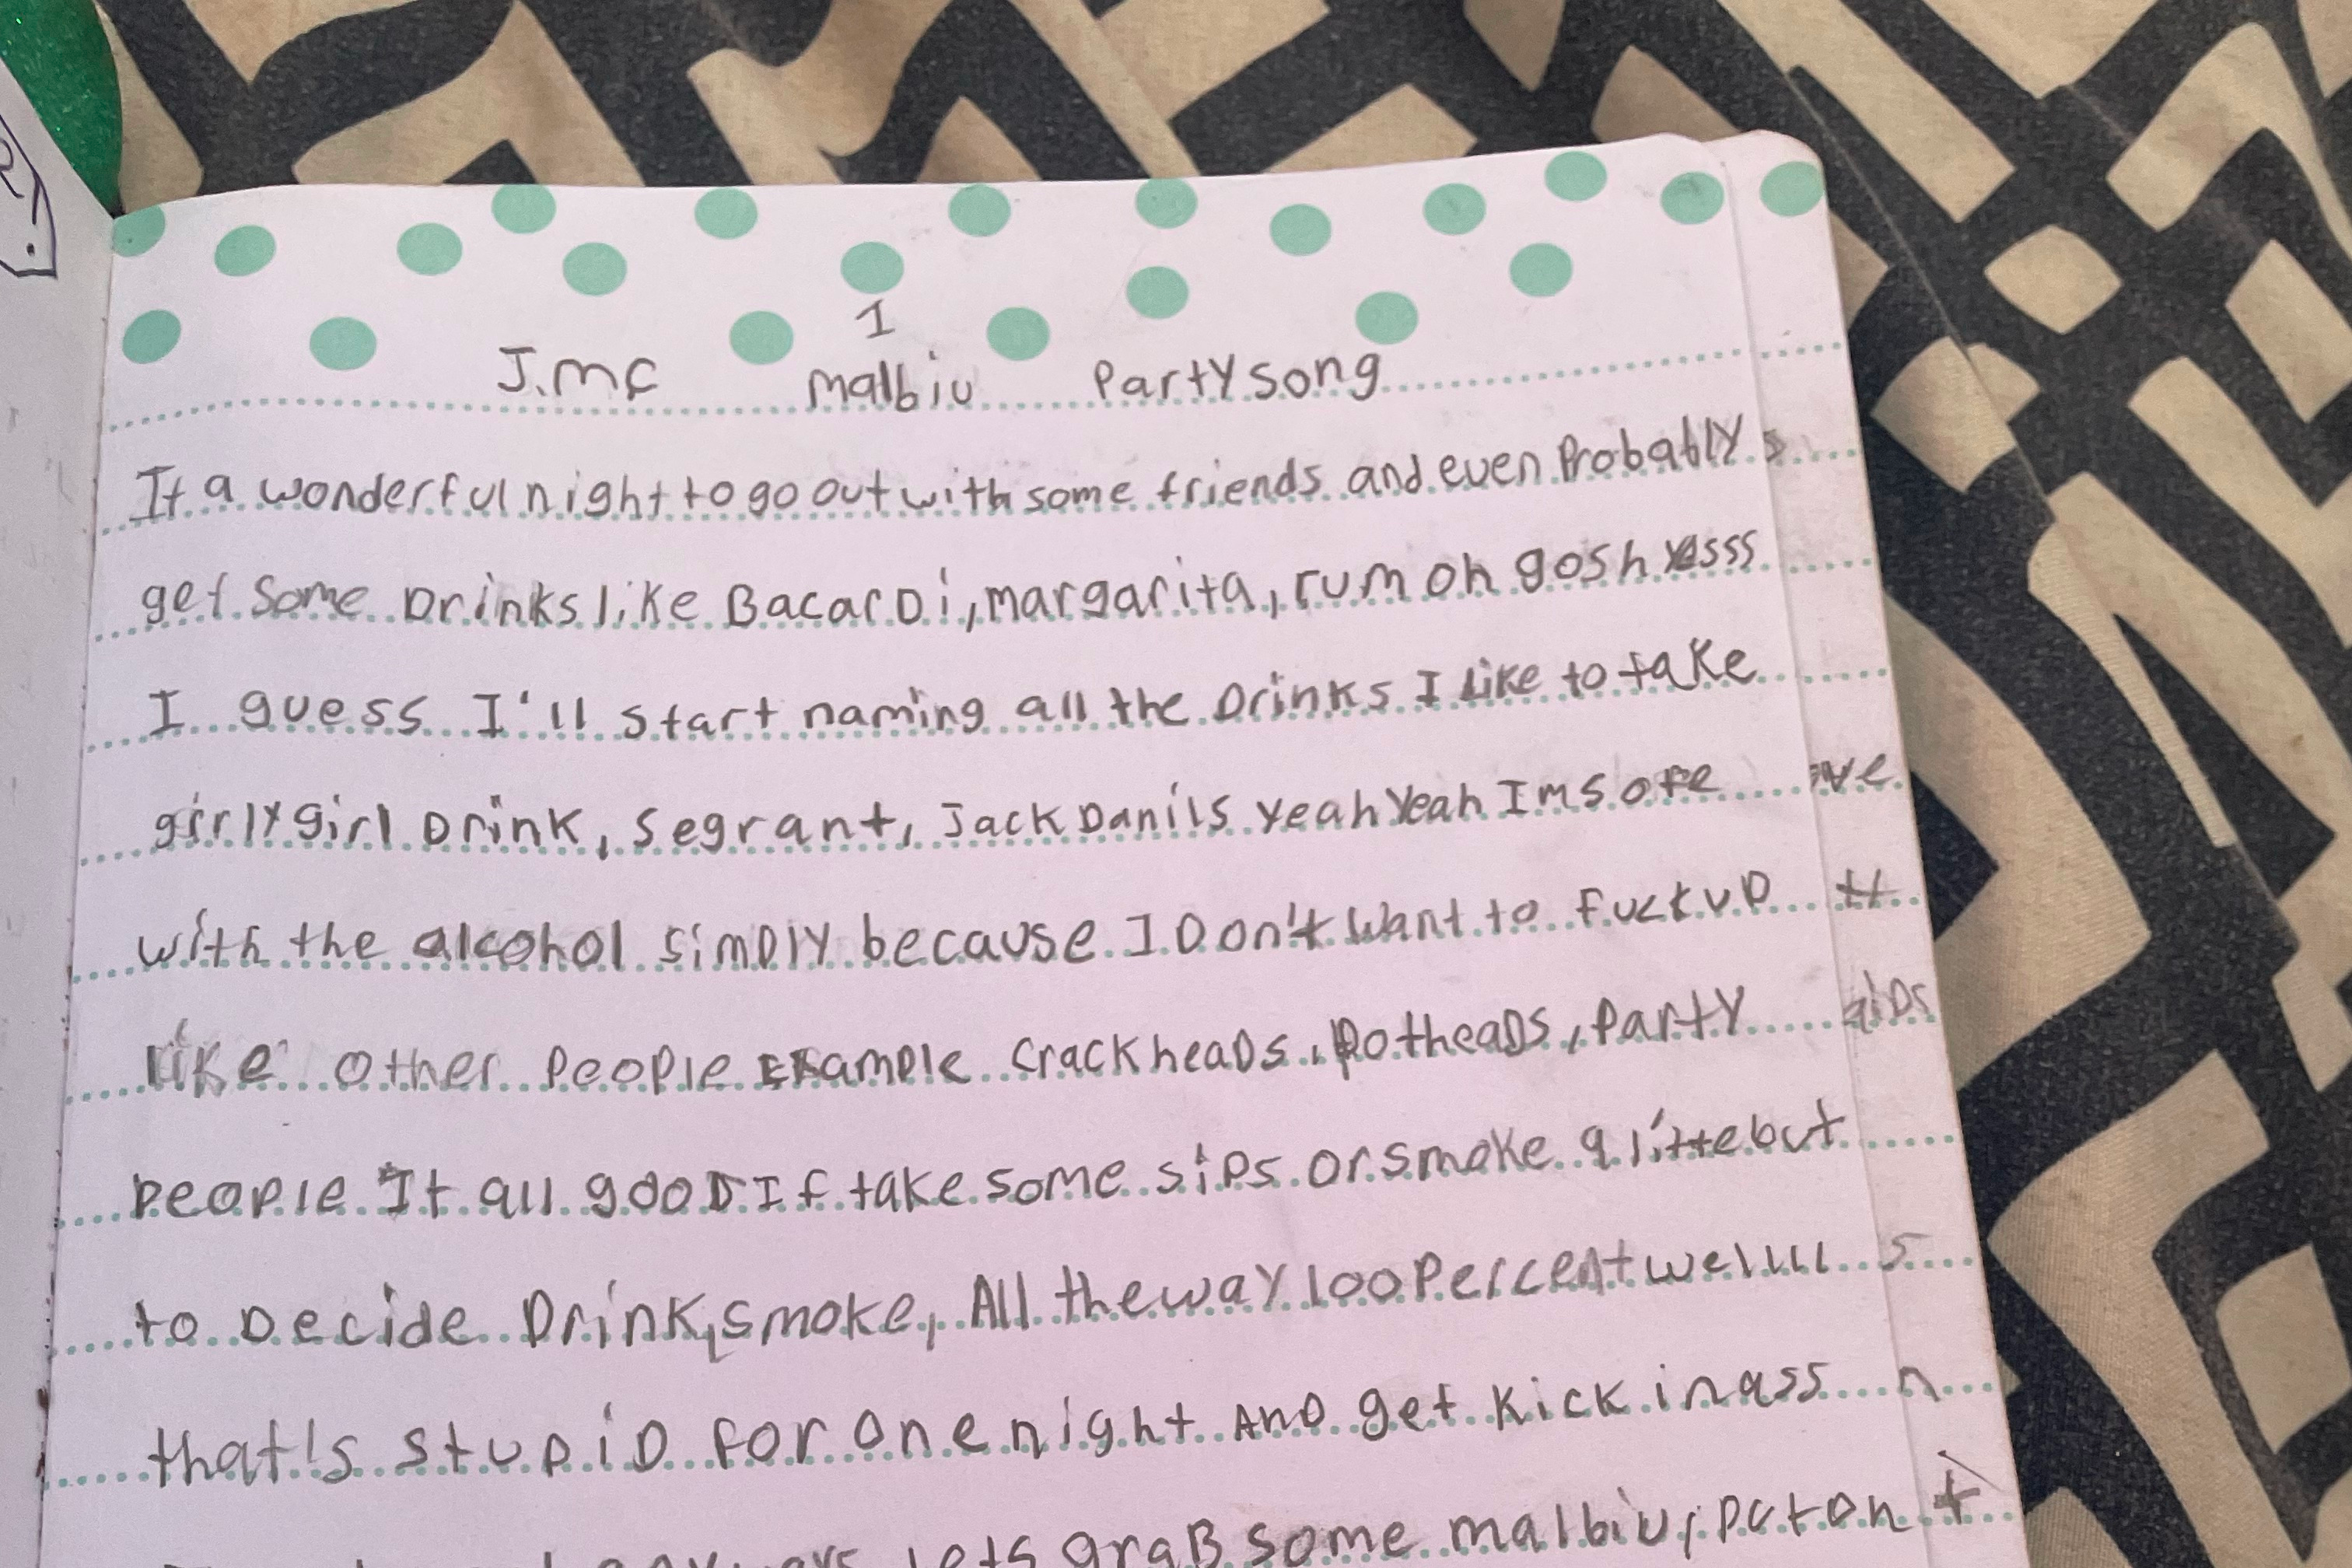 1
J.mc malbiu Party song
It a wonderful night to go out with some friends and even Probably
get Some Drinks like BacarDi, margarita, rum oh gosh yesss
I guess I'll start naming all the Drinks I Like to take
girly girl Drink, Segrant, Jack Danils yeah yeah Im
with the alcohol simply because I Don't want to fuck up
like other People Example crackheads, Potheads, Party
People It all gooD If take some sips or smoke a but
to Decide Drink, smoke, All the way 100 Percent wellll
that's stupiD for one night AnD get kick in ass
lets graB some malbiu,